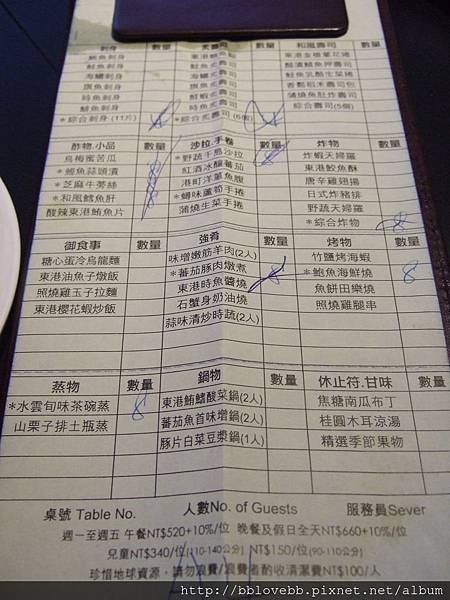 刺身 數量 炙壽司 數量 和風壽司 數量
鮪魚刺身
鮭魚刺身
海鱺刺身
旗魚刺身
時魚刺身
鯛魚刺身
*綜合刺身(11片)
海鱺炙壽司
旗魚炙壽司
鮮蝦炙壽司
時魚炙壽司
綜合炙壽司(6個)
東港金槍葉花捲
鮭魚乳酪生菜捲
香鬆稻禾豆包
蒲燒魚肚炸壽司
綜合壽司(5個)
酢物.小品 數量 沙拉.手卷 數量 炸物 數量
烏梅蜜苦瓜
*鯉魚蒜頭漬
*芝麻牛蒡絲
*和風鱈魚肝
酸辣東港鮪魚片
*野蔬千島沙拉
紅酒冰釀蕃茄
港町洋菓魚腹
*蟳味蘆筍手捲
蒲燒生菜手捲
炸蝦天婦羅
東港鮫魚酥
唐辛雞翅揚
日式炸豬排
野蔬天婦羅
*綜合炸物 8
御食事 數量 強肴 數量 烤物 數量
糖心蛋冷烏龍麵
東港油魚子燉飯
照燒雞玉子拉麵
東港櫻花蝦炒飯
味增嫩筋羊肉(2人)
*蕃茄豚肉燉煮
東港時魚醬燒
石蟹身奶油燒
蒜味清炒時蔬(2人)
竹鹽烤海蝦
*鮑魚海鮮燒 8
魚餅田樂燒
照燒雞腿串
蒸物 數量 鍋物 數量 休止符.甘味 數量
*水雲旬味茶碗蒸 8
山栗子排土瓶蒸
東港鮪鱔酸菜鍋(2人)
蕃茄魚首味增鍋(2人)
豚片白菜豆漿鍋(1人)
焦糖南瓜布丁
桂圓木耳涼湯
精選季節果物
桌號 Table No. 人數No. of Guests 服務員Sever
週一至週五 午餐NT$520+10%/位 晚餐及假日全天NT$660+10%/位
兒童NT$340/位(110-140公分) NT$150/位(90-110公分)
珍惜地球資源，請勿浪費/浪費者酌收清潔費NT$100/人
http://bblovebb.pixnet.net/album